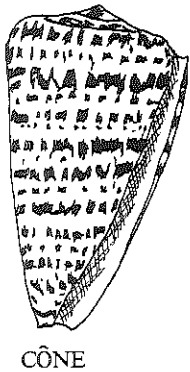 CÔNE